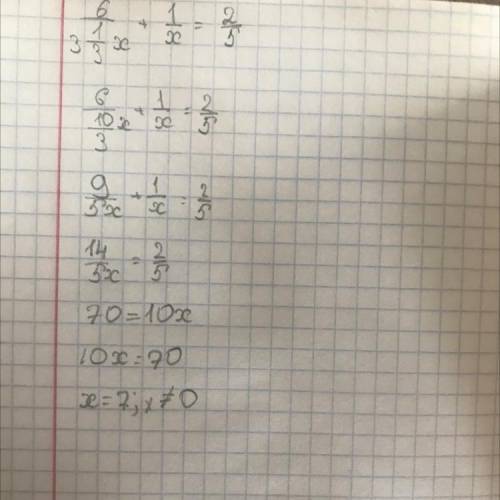 6/(3 1/3 x) + 1/x = 2/5
6/(10/3 x) + 1/x = 2/5
9/5x + 1/x = 2/5
14/5x = 2/5
70=10x
10x=70
x=7; x≠0